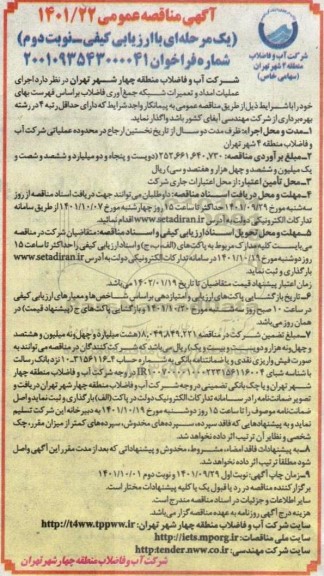 آگهی مناقصه عمومی ۱۴۰۱/۲۲
(یک مرحله‌ای با ارزیابی کیفی_نوبت دوم)
شماره فراخوان ۲۰۰۱۰۹۳۵۴۳۰۰۰۰۴۱
شرکت آب و فاضلاب
منطقه ۴ شهر تهران
(سهامی خاص)
شرکت آب و فاضلاب منطقه چهار شهر تهران در نظر دارد اجرای
عملیات امداد و تعمیرات شبکه جمع آوری فاضلاب براساس فهرست بهای
خود را با شرایط ذیل از طریق مناقصه عمومی به پیمانکار واجد شرایط که دارای حداقل رتبه ۴ در رشته
بهره‌برداری از شرکت مهندسی آبفای کشور باشد واگذار نماید.
۱_مدت و محل اجرا: ظرف مدت دو سال از تاریخ نخستین ارجاع در محدوده عملیاتی شرکت آب و
فاضلاب منطقه ۴ شهر تهران
۲_مبلغ برآوردی مناقصه: ۲۵۲،۶۶۱،۶۴۰،۷۳۰ (دویست و پنجاه و دو میلیارد و ششصد و شصت و
یک میلیون و ششصد و چهل هزار و هفتصد و سی) ریال
۳_محل تأمین اعتبار: از محل اعتبارات جاری شرکت
۴_مهلت و محل دریافت اسناد مناقصه: داوطلبان می‌توانند جهت دریافت اسناد مناقصه از روز
سه‌شنبه مورخ ۱۴۰۱/۰۹/۲۹ حداکثر تا ساعت ۱۵ روز چهارشنبه مورخ ۱۴۰۱/۱۰/۰۷ از طریق سامانه
تدارکات الکترونیکی دولت به آدرس www.setadiran.ir اقدام نمائید.
۵_مهلت و محل تحویل اسناد ارزیابی کیفی و اسناد مناقصه: متقاضیان شرکت در مناقصه
می‌بایست کلیه مدارک مربوط به پاکت‌های (الف، ب، ج) و اسناد ارزیابی کیفی را حداکثر تا ساعت ۱۵
روز دوشنبه مورخ ۱۴۰۱/۱۰/۱۹ در سامانه تدارکات الکترونیکی دولت به آدرس www.setadiran.ir
بارگذاری و ثبت نماید.
زمان اعتبار پیشنهاد قیمت متقاضیان تا تاریخ ۱۴۰۲/۰۱/۱۹ می‌باشد.
۶_تاریخ بازگشایی پاکت‌های ارزیابی و امتیازدهی براساس شاخص‌ها و معیارهای ارزیابی کیفی
در ساعت ۱۰ صبح روز سه‌شنبه مورخ ۱۴۰۱/۱۰/۲۰ و بازگشایی پاکت‌های ج (پیشنهاد قیمت) در
همان روز می‌باشد.
۷_مبلغ تضمین شرکت در مناقصه ۸،۰۴۹،۸۴۹،۲۲۱ (هشت میلیارد و چهل ونه میلیون و هشتصد
و چهل ونه هزار و دویست و بیست و یک) ریال می‌باشد که شرکت‌کنندگان در مناقصه می‌توانند به
صورت فیش واریزی نقدی و یا ضمانتنامه بانکی به شماره حساب
شهر تهران و یا چک بانکی تضمینی در وجه شرکت آب و فاضلاب منطقه چهار شهر تهران دریافت و
تصویر ضمانت‌نامه را در سامانه تدارکات الکترونیک دولت در پاکت (الف) بارگذاری و ثبت نماید و اصل
ضمانت‌نامه موصوف را تا ساعت ۱۵ روز دوشنبه مورخ ۱۴۰۱/۱۰/۱۹ به دبیرخانه این شرکت تسلیم
نماید و به پیشنهادهایی که فاقد سپرده، سپرده‌های مخدوش، سپرده‌های کمتر از میزان مقرر، چک
شخصی و نظایر آن ترتیب اثر داده نخواهد شد.
۸_به پیشنهادات فاقد امضاء، مشروط، مخدوش و پیشنهاداتی که بعد از مدت مقرر این آگهی واصل
شود مطلقا ترتیب اثر داده نخواهد شد.
۹_زمان چاپ آگهی: نوبت اول ۱۴۰۱/۰۹/۲۹ و نوبت دوم ۱۴۰۱/۱۰/۰۱
برگزار کننده مناقصه در رد یا قبول یک یا کلیه پیشنهادات مختار است.
سایر اطلاعات و جزئیات در اسناد مناقصه مندرج است.
هزینه درج آگهی روزنامه به عهده مناقصه گزار می‌باشد.
سایت شرکت آب و فاضلاب منطقه چهار شهر تهران: http://t4ww.tppww.ir
سایت ملی مناقصات: http://iets.mporg.ir
سایت شرکت مهندسی: http:tender.nww.co.ir
شرکت آب و فاضلاب منطقه چهار شهر تهران